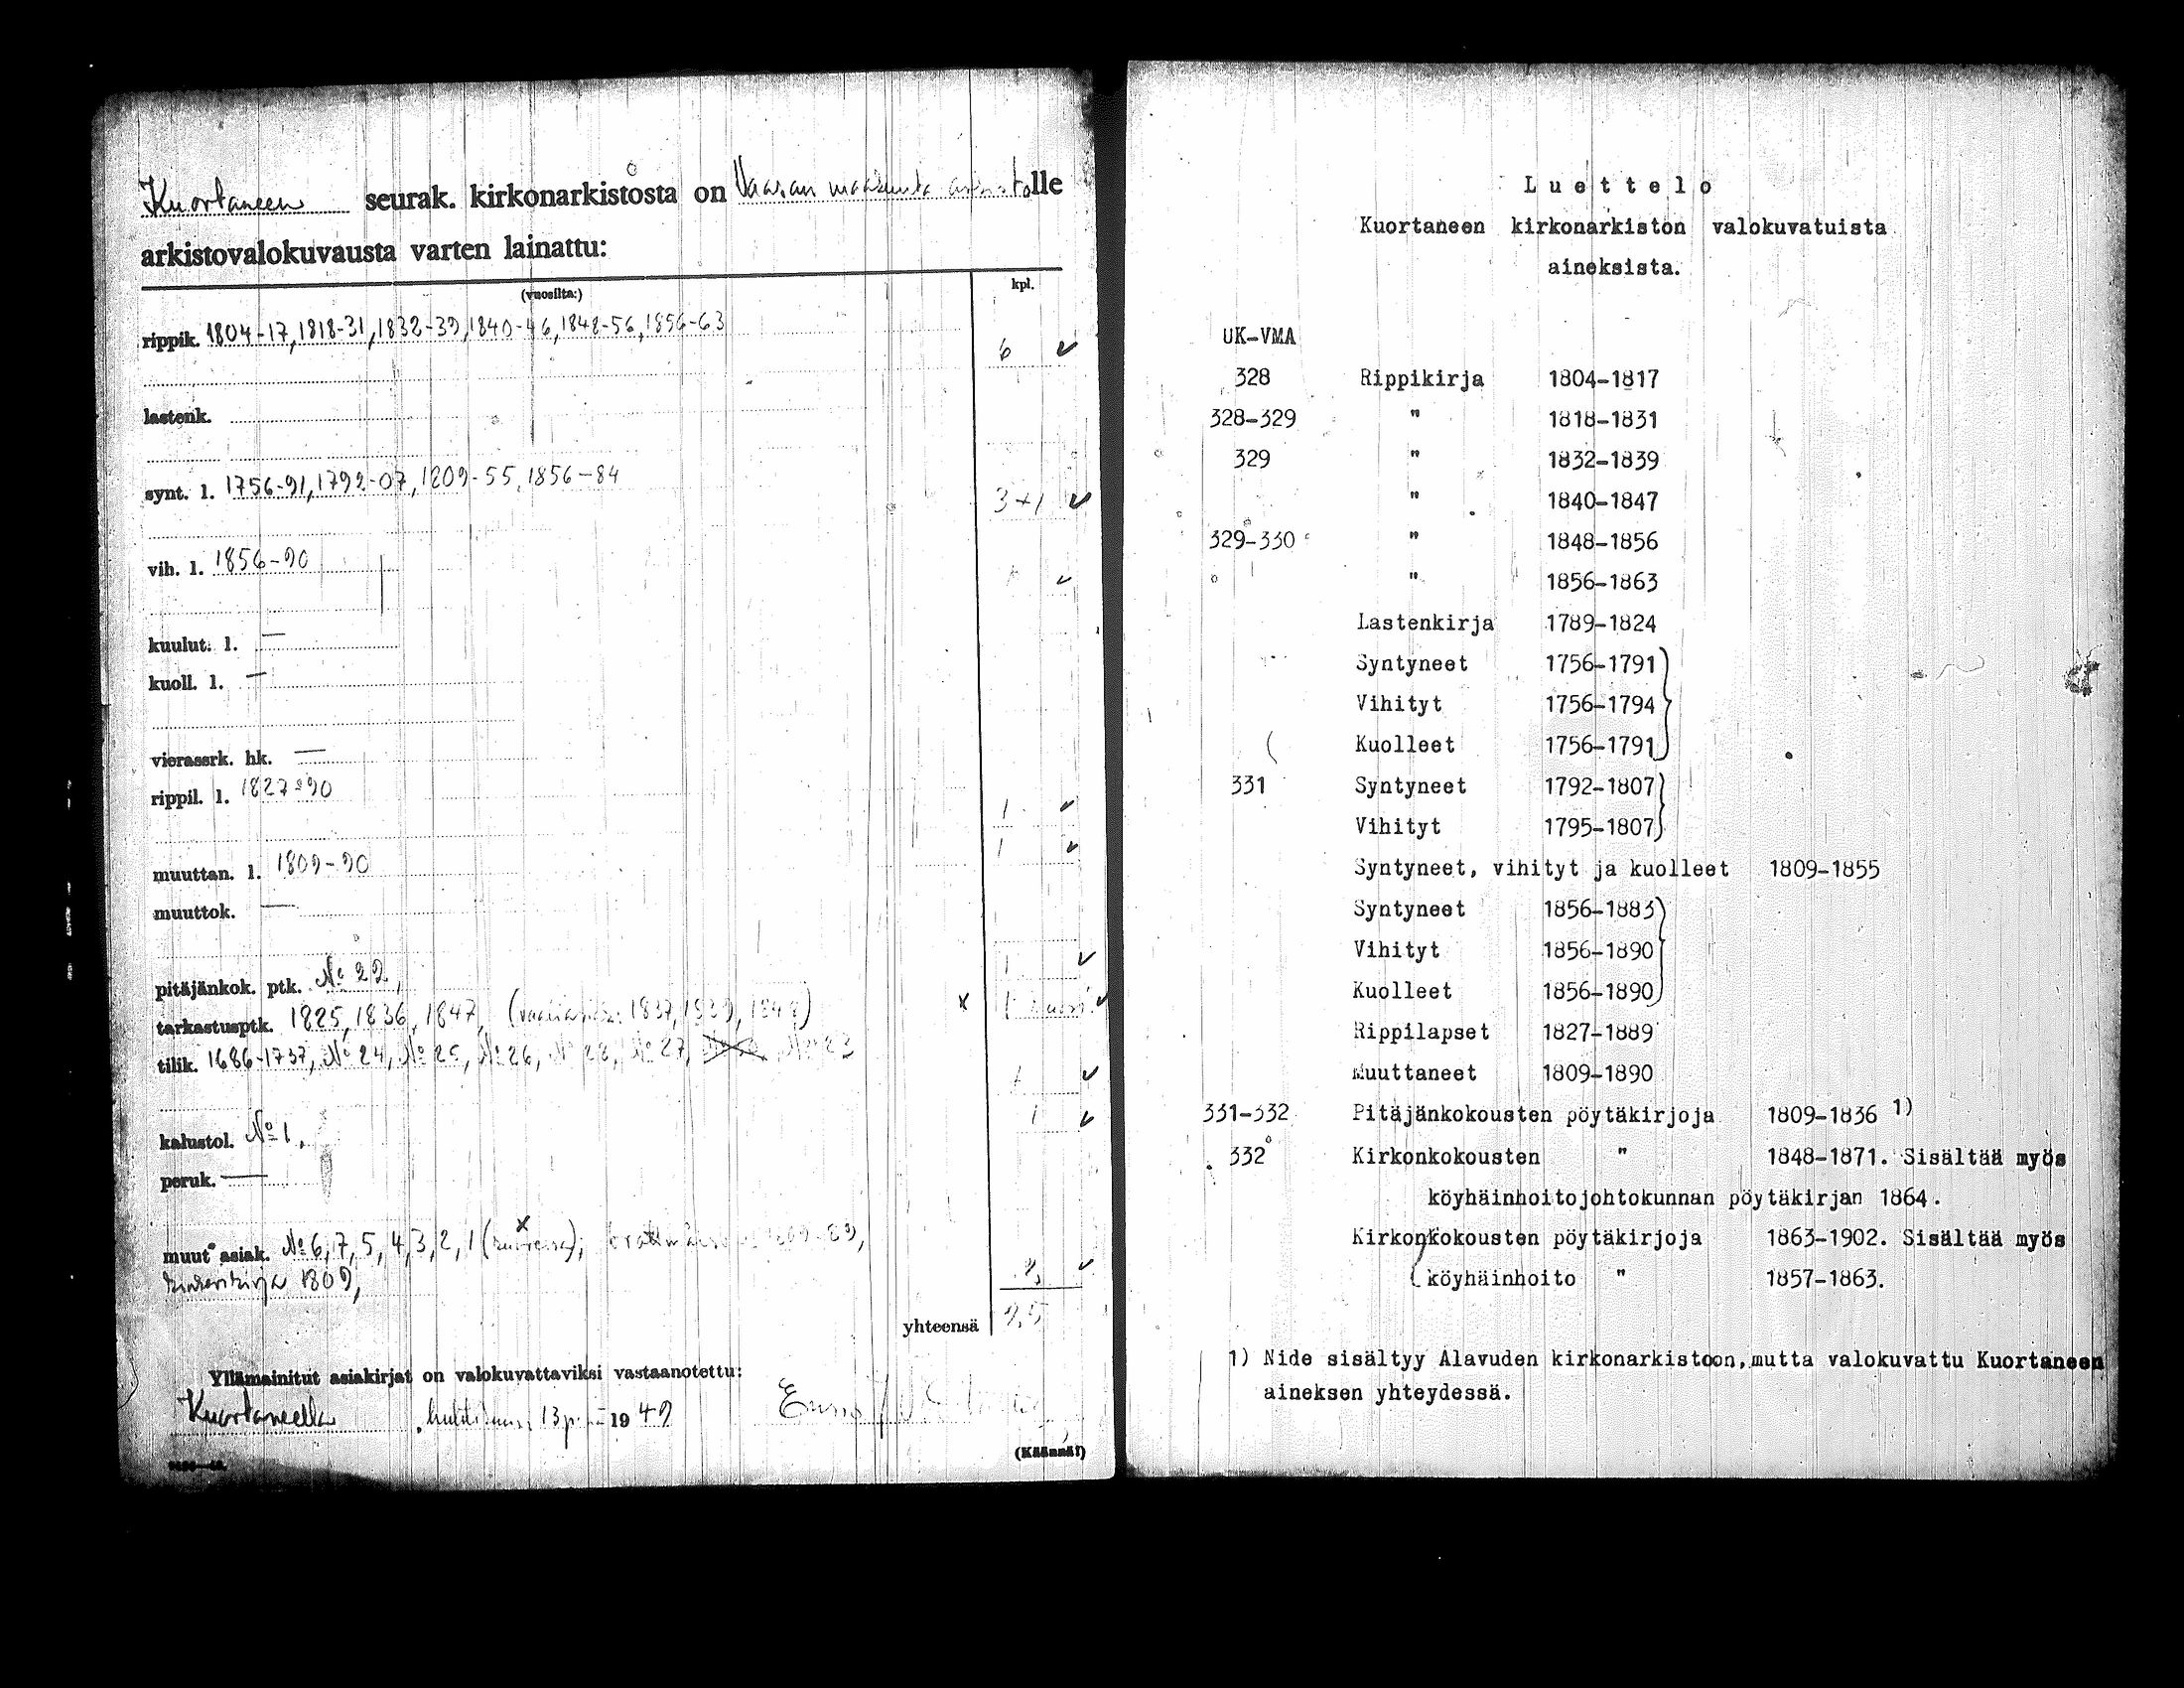 Kuortaneen seurak. kirkonarkistosta on Vaasan maakunta arkistolle
arkistovalokuvausta varten lainattu:
(vuosilta:) kpl.
rippik. 1804-17, 1818-31, 1832-39, 1840-46, 1848-56, 1856-63
6 ✓
lastenk.
synt. l. 1756-91, 1792-07, 1809-55, 1856-84
3+1 ✓
vih. l. 1856-90
✓
kuulut. l. —
kuoll. l. —
vierassrk. hk. —
rippil. l. 1827-90
1 ✓
1 ✓
muuttan. l. 1809-90
muuttok. —
1 ✓
pitäjänkok. ptk. No 22,
tarkastusptk. 1825, 1836, 1847, ( 1837, 1839, 1848) x 1 ✓
tilik. 1686-1737, No 24, No 25, No 26, No 28, No 27, No 23
1 ✓
1 ✓
kalustol. No 1,
peruk. —
x
muut asiak. No 6, 7, 5, 4, 3, 2, 1
1809,
✓
yhteensä 25
Yllämainitut asiakirjat on valokuvattaviksi vastaanotettu:
Kuortaneella, huhtikuun 13 p. 1949
(Käännä!)
Luettelo
Kuortaneen kirkonarkiston valokuvatuista
aineksista.
UK-VMA
328 Rippikirja 1804-1817
328-329 " 1818-1831
329 " 1832-1839
" 1840-1847
329-330 " 1848-1856
" 1856-1863
Lastenkirja 1789-1824
Syntyneet 1756-1791
Vihityt 1756-1794
Kuolleet 1756-1791
331 Syntyneet 1792-1807
Vihityt 1795-1807
Syntyneet, vihityt ja kuolleet 1809-1855
Syntyneet 1856-1883
Vihityt 1856-1890
Kuolleet 1856-1890
Rippilapset 1827-1889
Muuttaneet 1809-1890
331-332 Pitäjänkokousten pöytäkirjoja 1809-1836 1)
332 Kirkonkokousten " 1848-1871. Sisältää myös
köyhäinhoitojohtokunnan pöytäkirjan 1864.
Kirkonkokousten pöytäkirjoja 1863-1902. Sisältää myös
köyhäinhoito " 1857-1863.
1) Nide sisältyy Alavuden kirkonarkistoon, mutta valokuvattu Kuortaneen
aineksen yhteydessä.